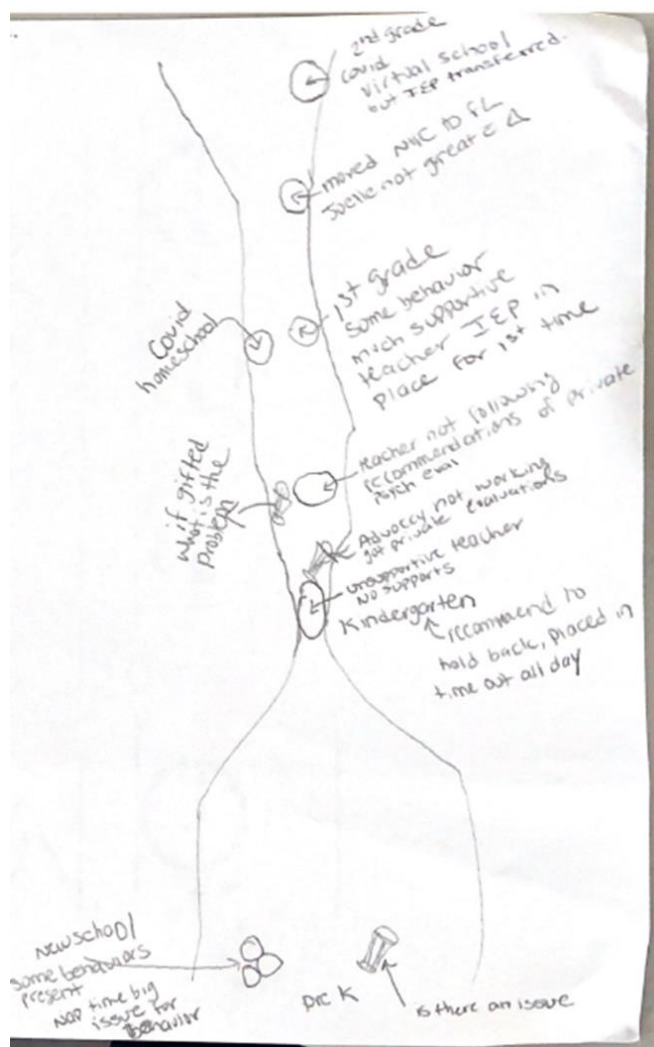 2nd grade
covid
virtual school
but IEP transferred.
moved NYC to FL
not great c Δ
1st grade
some behavior
much supportive
teacher IEP in
place for 1st time
Covid
homeschool
teacher not following
recommendations of private
psich eval
what if gifted
what is the
problem
Advoccy not working
got private evaluations
unsupportive teacher
No supports
Kindergarten
recommend to
hold back, placed in
time out all day
New school
some behaviors
present
nap time big
issue for
Behavior
pre K
is there an issue